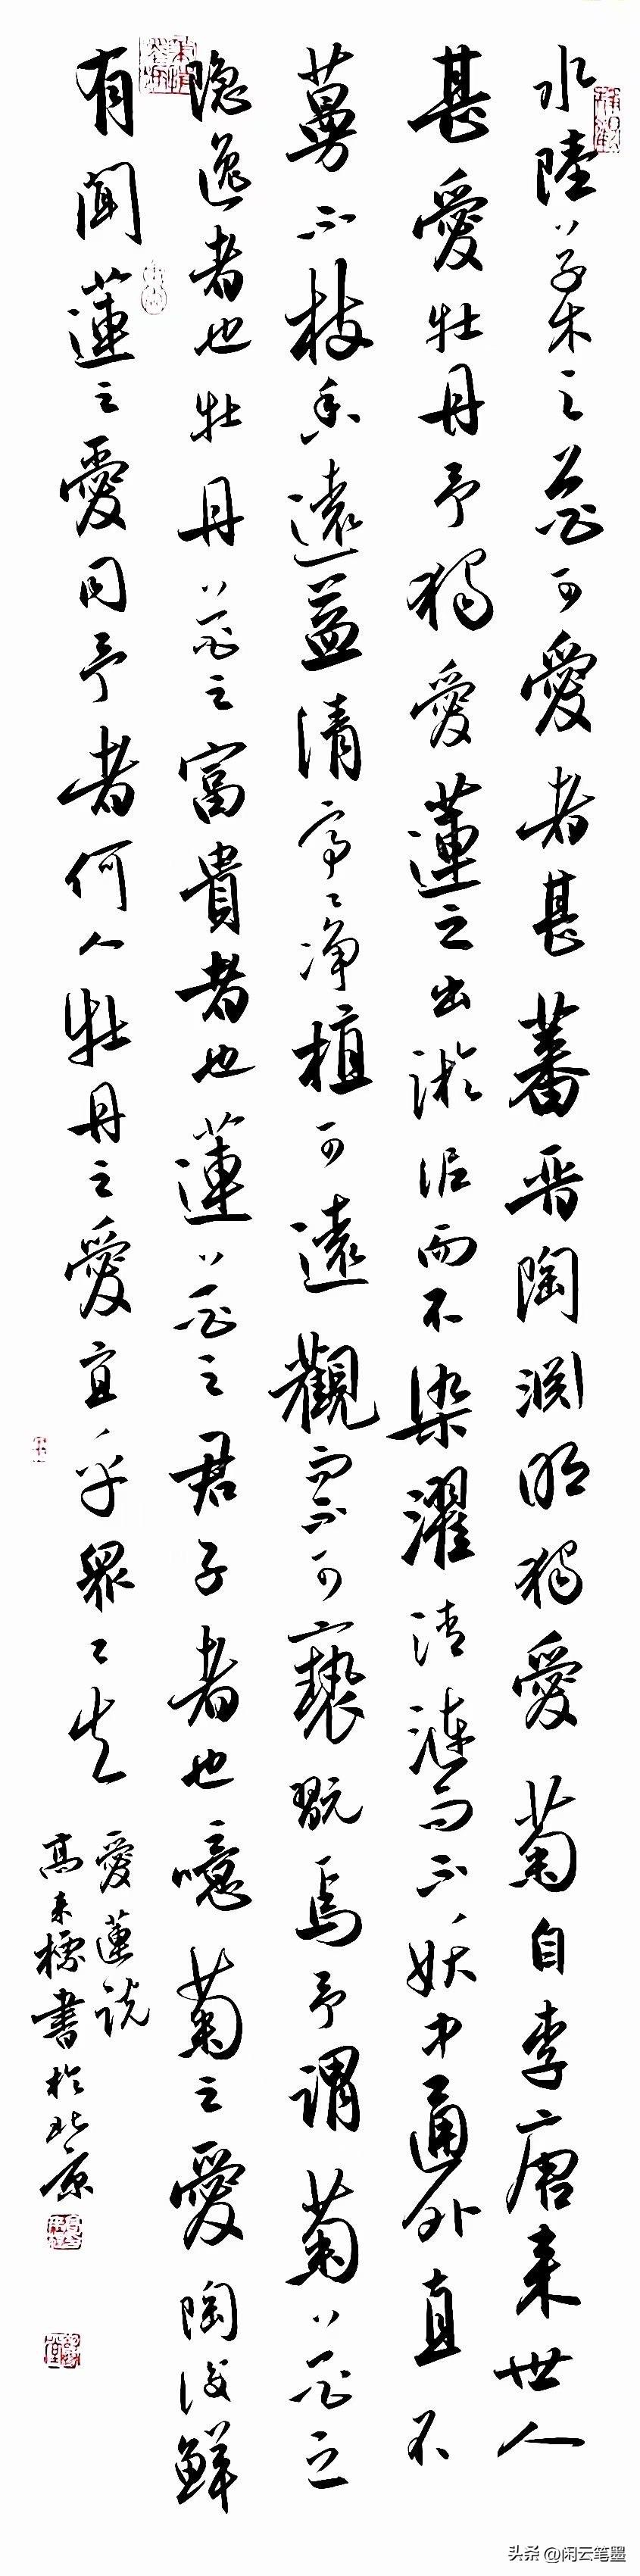 水陸草木之花可愛者甚蕃晋陶渊明獨愛菊自李唐来世人
甚愛牡丹予獨愛蓮之出淤泥而不染濯清漣而不妖中通外直不
蔓不枝香遠益清亭々净植可遠觀而不可褻翫焉予謂菊花之
隐逸者也牡丹花之富貴者也蓮花之君子者也噫菊之愛陶後鮮
有聞蓮之愛同予者何人牡丹之愛宜乎眾々矣
愛蓮説
高来標書於北京
头条 @闲云笔墨